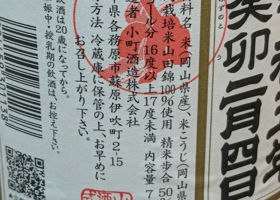 癸卯二月四日
料名 米(岡山県産)、米こうじ(岡山県
栽培米山田錦100%使用 精米歩合50
ール分 16度以上17度未満 内容量7
者 小町酒造株式会社
県各務原市蘇原伊吹町2-15
方法 冷蔵庫に保管の上、お早めに
お召し上がり下さい。
飲酒は20歳になってから。
妊娠中・授乳期の飲酒は、お控え下さい。